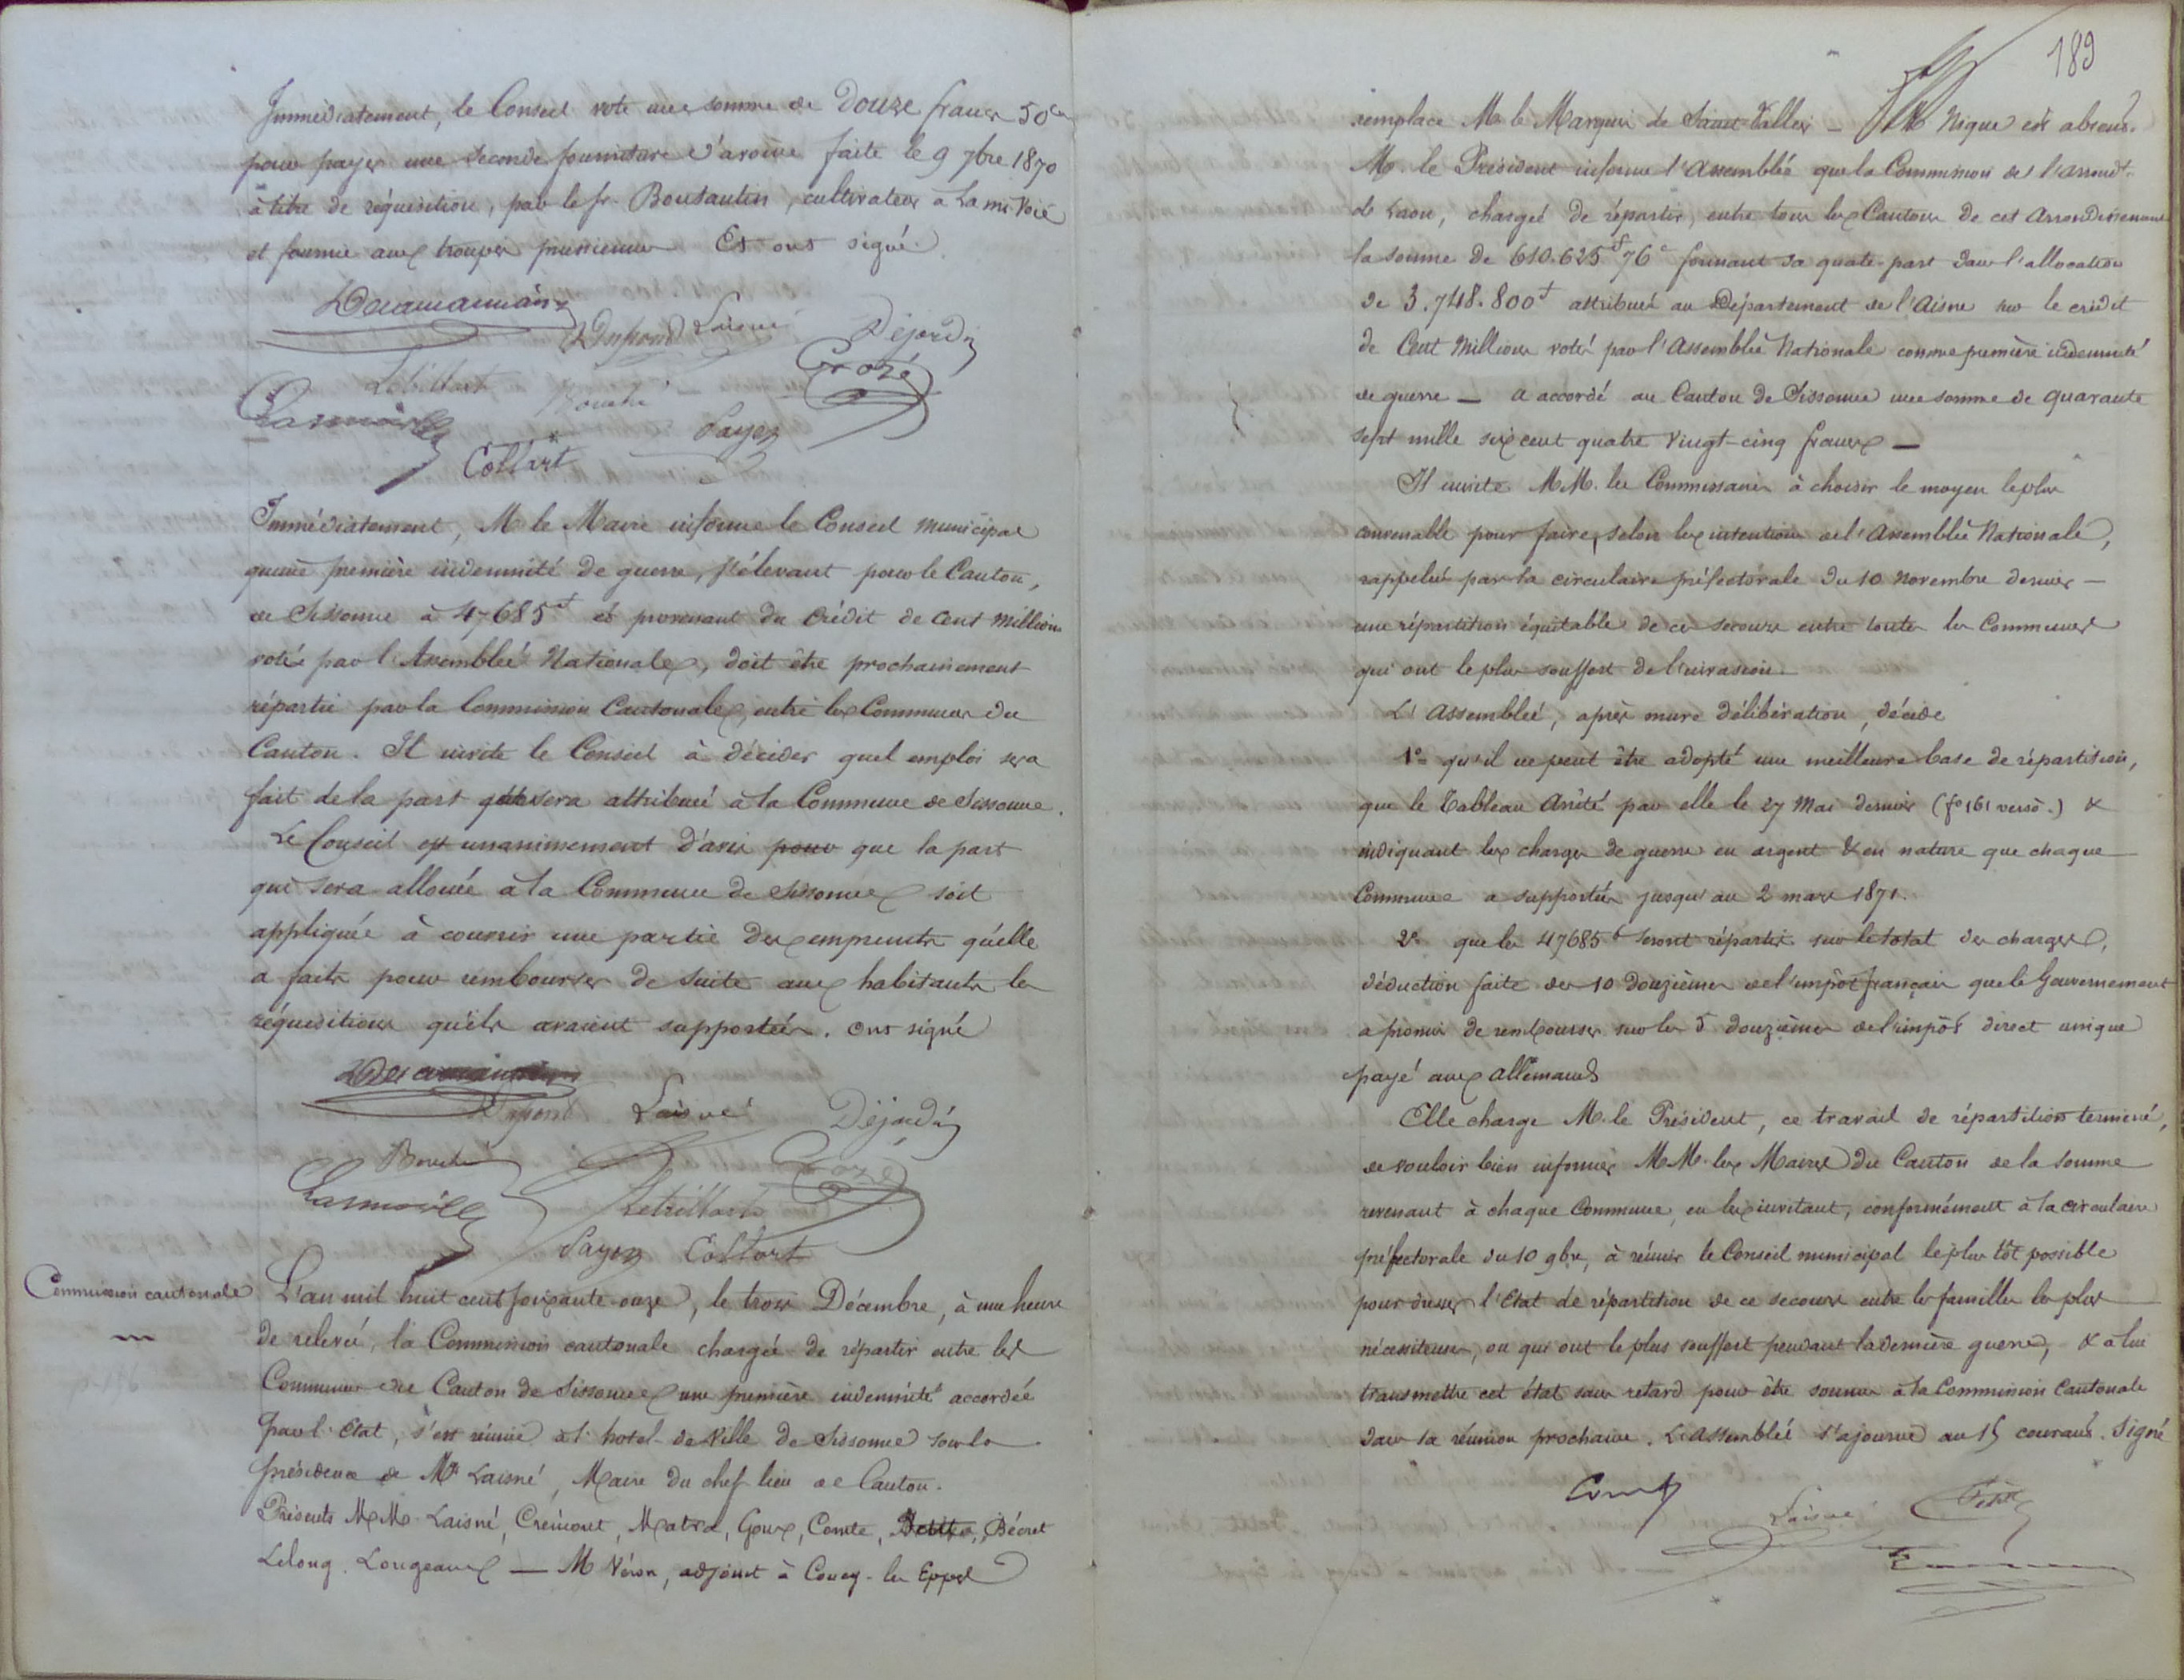 Immédiatement, le Conseil vote une somme de Douze francs 50 c
pour payer une seconde fourniture d'avoine faite le 9 7bre 1870
à titre de réquisition, par le sr Boutantin, cultivateur à La mi Voie
et fournie aux troupes prussiennes Et ont signé.
Dupond Laisné Déjardin
Létrillart Bouché Crozé
Payen
Collart
Immédiatement, M le Maire informe le Conseil Municipal
qu'une première indemnité de guerre, s'élevant pour le Canton,
de Sissonne à 47685f et provenant du Crédit de Cent millions
votés par l'Assemblée Nationale, doit être prochainement
répartie par la Commission Cantonale, entre les Communes du
Canton. Il invite le Conseil à décider quel emploi sera
fait de la part qui sera attribuée à la Commune de Sissonne.
Le Conseil est unanimement d'avis pour que la part
qui sera allouée à la Commune de Sissonne soit
appliquée à couvrir une partie des emprunts qu'elle
a faits pour rembourser de suite aux habitants les
réquisitions qu'ils avaient supportées. Ont signé
Dupond Laisné Déjardin
Bouché Crozé
Létrillart
Payen Collart
Commission cantonale
L'an mil huit cent soixante-onze, le trois Décembre, à une heure
de relevée, la Commission cantonale chargée de répartir entre les
Communes du Canton de Sissonne une première indemnité accordée
par l'Etat, s'est réunie à l'hotel-de-Ville de Sissonne sous la
présidence de Mr Laisné, Maire du chef-lieu de Canton.
Présents MM. Laisné, Crémont, Matra, Goux, Comte, Décret
Lelong. Longeaux — M Véron, adjoint à Coucy-les Eppes
189
remplace M. le Marquis de Saint-Vallier — M Nique est absent.
M. le Président informe l'Assemblée que la Commission de l'arrondt
de Laon, chargée de répartir, entre tous les Cantons de cet Arrondissement
la somme de 610.625f 76c formant sa quote-part dans l'allocation
de 3.748.800f attribuée au Département de l'Aisne sur le crédit
de Cent Millions voté par l'Assemblée Nationale comme première indemnité
de guerre — a accordé au Canton de Sissonne une somme de quarante
sept mille six cent quatre vingt-cinq francs —
Il invite MM. les Commissaires à choisir le moyen le plus
convenable pour faire, selon les intentions de l'Assemblée Nationale,
rappelées par la circulaire préfectorale du 10 Novembre dernier —
une répartition équitable de ce secours entre toutes les Communes
qui ont le plus souffert de l'invasion.
L'Assemblée, après mure délibération, décide
1° qu'il ne peut être adopté une meilleure base de répartition,
que le Tableau arrêté par elle le 27 Mai dernier (fo 161 verso.) &
indiquant les charges de guerre en argent & en nature que chaque
Commune a supportées jusqu'au 2 mars 1871.
2° que les 47685f seront répartis sur le total des charges,
déduction faite des 10 douzièmes de l'impôt français que le Gouvernement
a promis de rembourser sur les 5 douzièmes de l'impôt direct unique
payé aux allemands
Elle charge M. le Président, ce travail de répartition terminé,
de vouloir bien informer MM. les Maires du Canton de la somme
revenant à chaque Commune, en les invitant, conformément à la circulaire
préfectorale du 10 9bre, à réunir le Conseil municipal le plus tôt possible
pour dresser l'Etat de répartition de ce secours entre les familles les plus
nécessiteuses, ou qui ont le plus souffert pendant la dernière guerre, & à lui
transmettre cet état sans retard pour être soumis à la Commission Cantonale
dans sa réunion prochaine. L'Assemblée s'ajourne au 15 courant. Signé
Comte Laisné